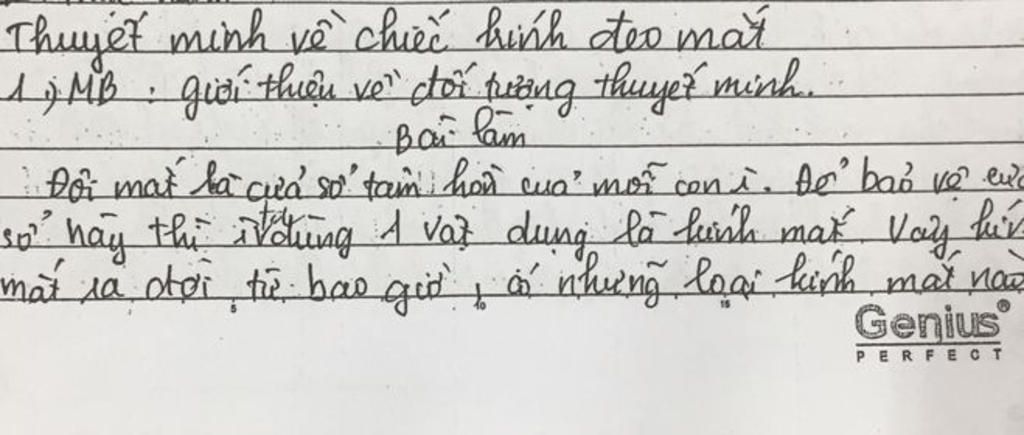 Thuyết minh về chiếc kính đeo mắt
1, MB : giới thiệu về đối tượng thuyết minh.
Bài làm
Đôi mắt là cửa sổ tâm hồn của mỗi con i. Để bảo vệ cửa
sổ này thì ta dùng 1 vật dụng là kính mắt. Vậy kín
mắt ra đời từ bao giờ, có những loại kính mắt nào
5 10 15
Genius®
PERFECT